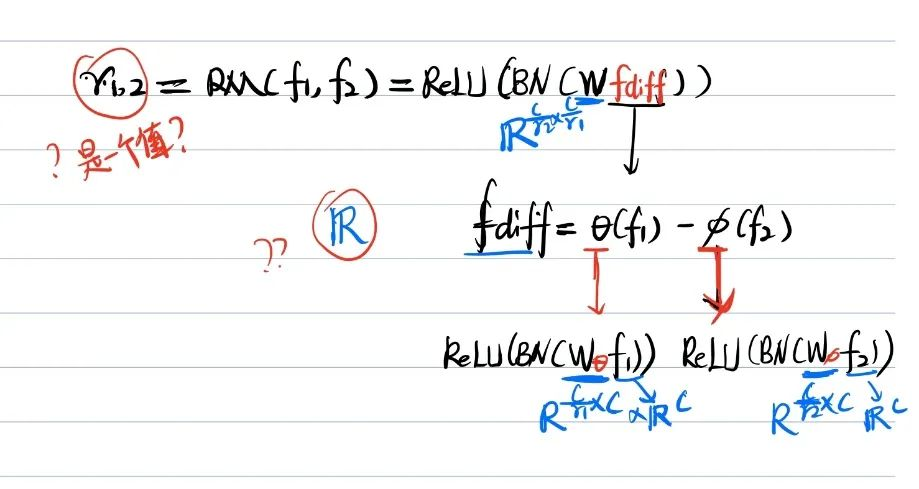 r₁,₂ = RM(f₁, f₂) = ReLU(BN(W fdiff))
ℝ^{C/r₂ × C/r₁}
? 是一个值?
?? ℝ fdiff = θ(f₁) − φ(f₂)
ReLU(BN(W_θ f₁)) ReLU(BN(W_φ f₂))
ℝ^{C/r₁ × C} ℝ^C ℝ^{C/r₂ × C} ℝ^C